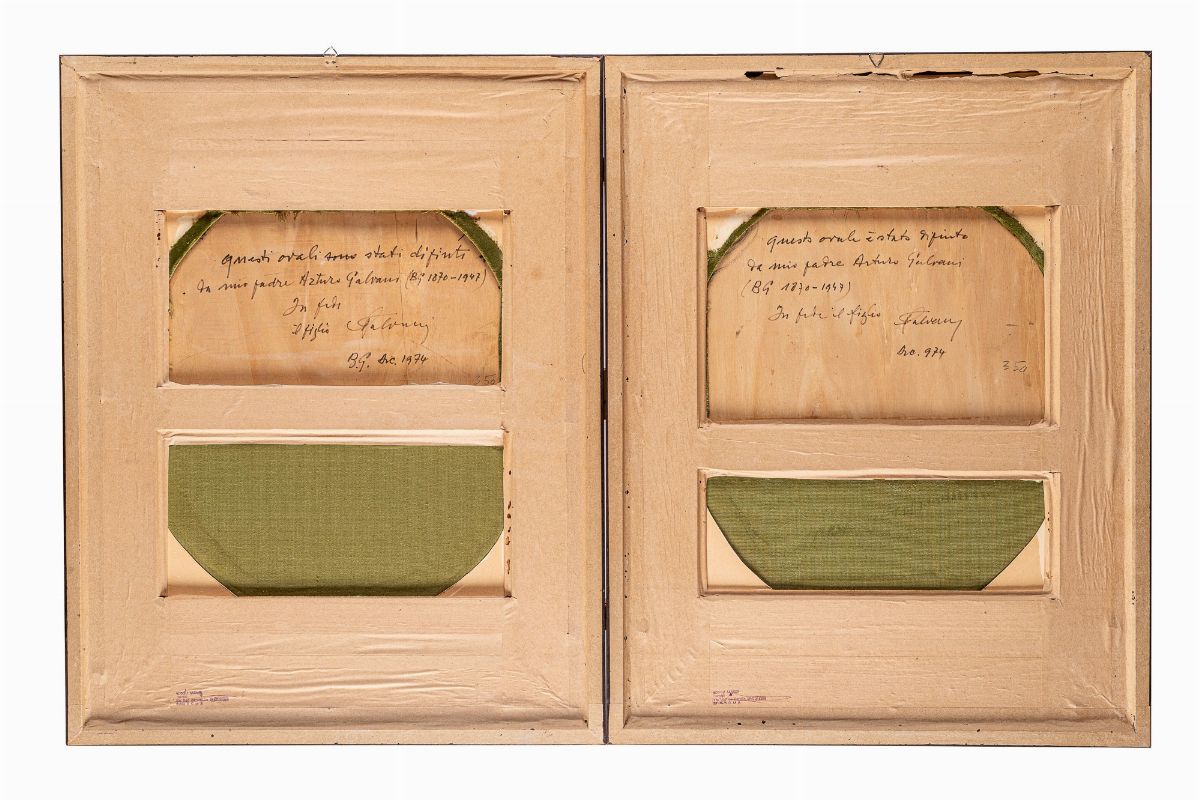 questi ovali sono stati dipinti
da mio padre Arturo Galvani (BG 1870-1947)
In fede
il figlio Galvani
BG. Dic. 1974
350
questo ovale è stato dipinto
da mio padre Arturo Galvani
(BG 1870-1947)
In fede il figlio Galvani
Dic. 974
350